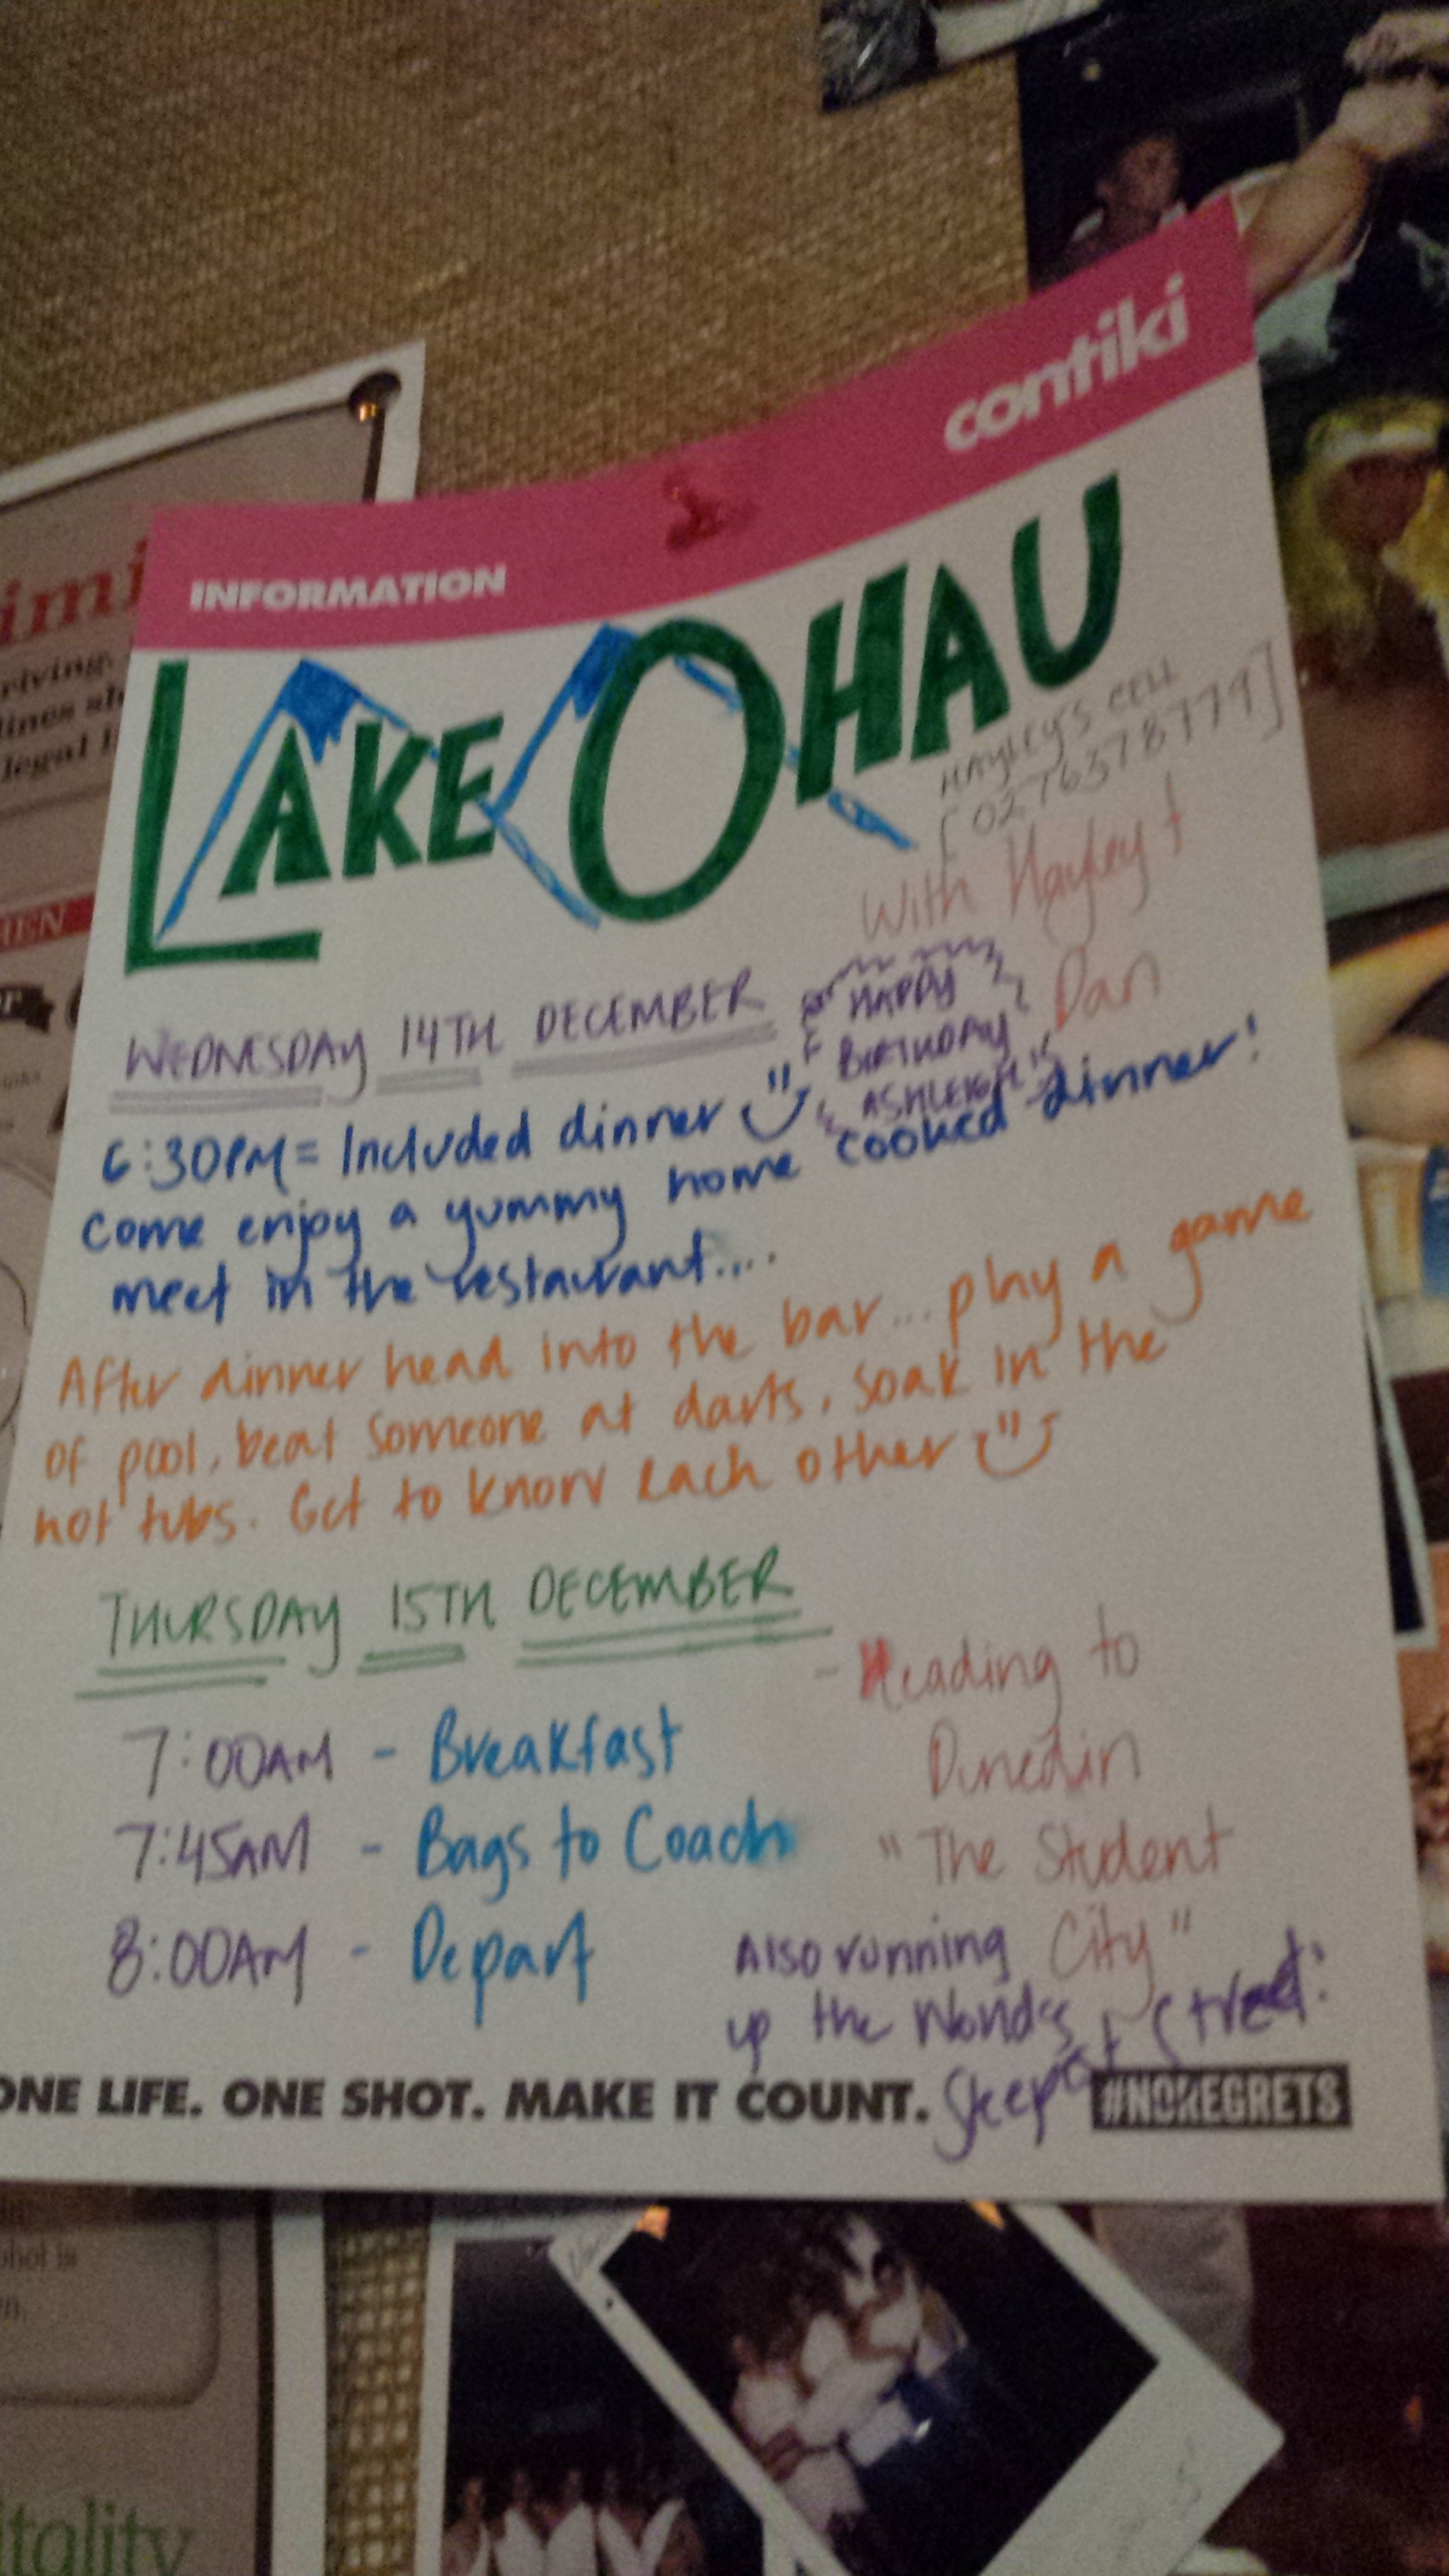 contiki
INFORMATION
LAKE OHAU
HAYLEY'S CELL
[0276378779]
With Hayley +
Dan
WEDNESDAY 14TH DECEMBER
HAPPY
BIRTHDAY
ASHLEIGH
6:30PM = Included dinner
Come enjoy a yummy home cooked dinner!
meet in the restaurant....
After dinner head into the bar... play a game
of pool, beat someone at darts, soak in the
hot tubs. Get to know each other
THURSDAY 15TH DECEMBER
- Heading to
Dunedin
"The Student
City"
7:00AM - Breakfast
7:45AM - Bags to Coach
8:00AM - Depart
Also running
up the World's
Steepest Street!
ONE LIFE. ONE SHOT. MAKE IT COUNT.
#NOREGRETS
imi
riving,
lines sh
legal
itality
hot is